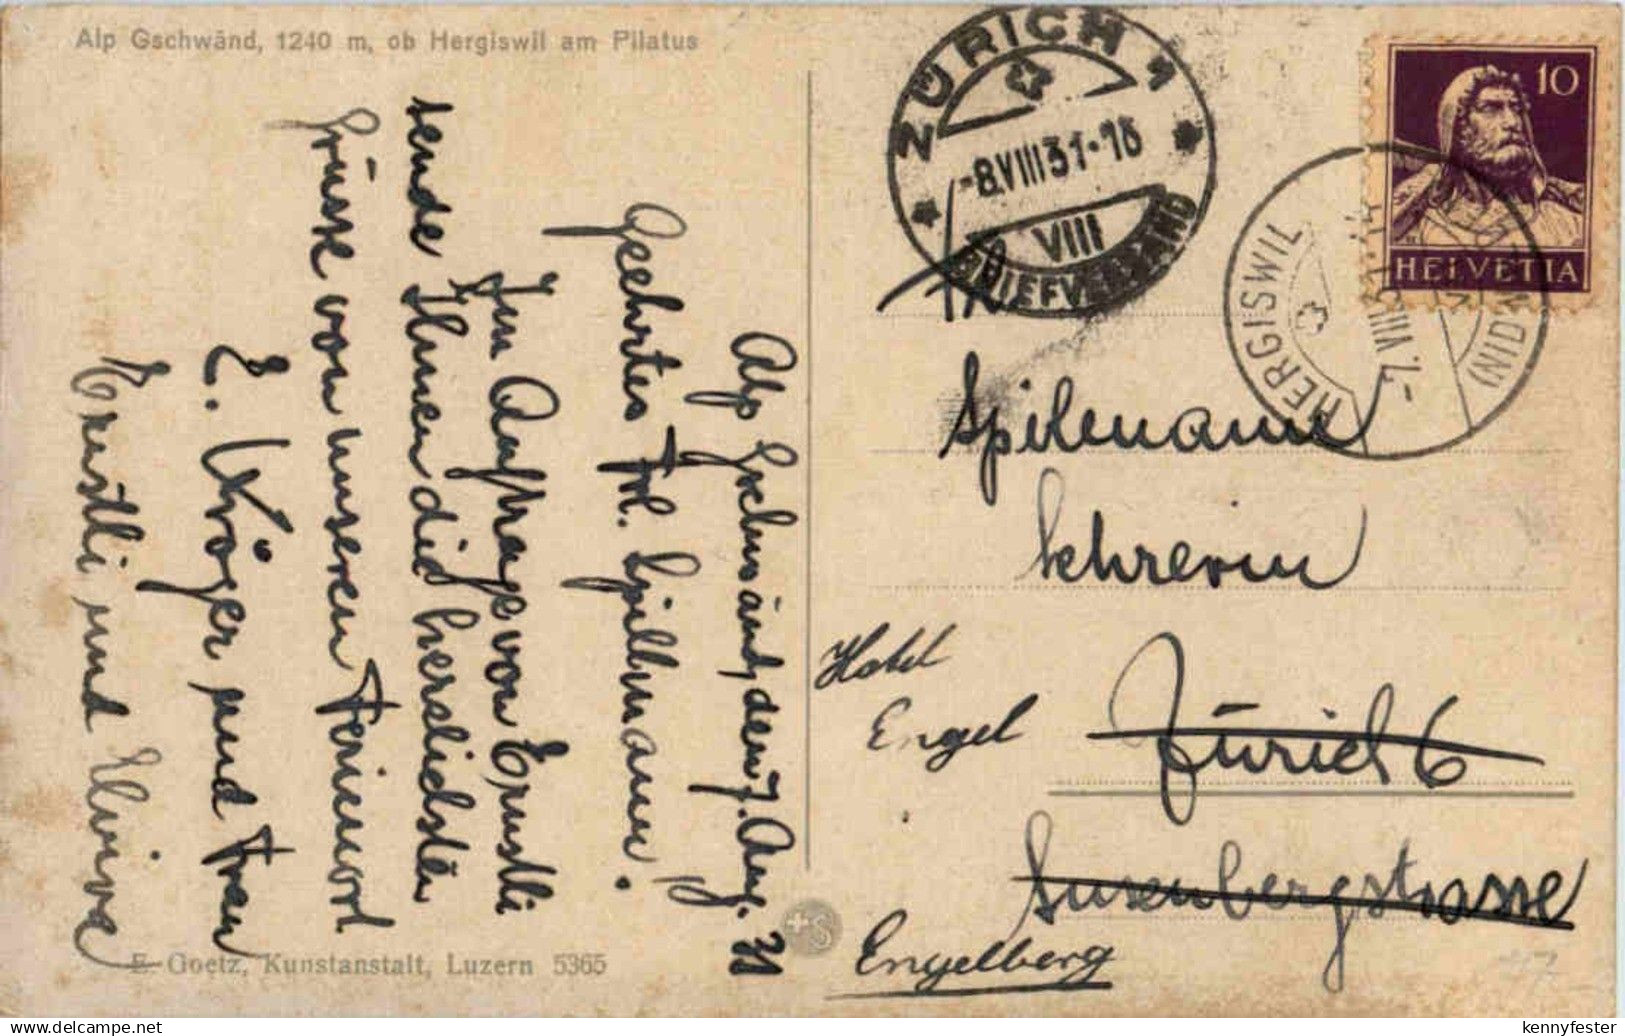 Alp Gschwänd, 1240 m, ob Hergiswil am Pilatus
Alp Gschwänd, den 7. Aug. 31
Geehrtes Frl. Spillmann.
Im Auftrage von Ernstli
sende Ihnen die herzlichsten
Grüsse von unserem Ferienort
E. Kröger und Frau
Ernstli und Elvira
E. Goetz, Kunstanstalt, Luzern 5365
ZÜRICH 1
-8.VIII 31-16
VIII
BRIEFVERSAND
10
HELVETIA
HERGISWIL
(NIDW.
-7.VIII.31
Spilmann
Lehrerin
Hotel
Engel
Zürich 6
Susenbergstrasse
Engelberg
kennyfester